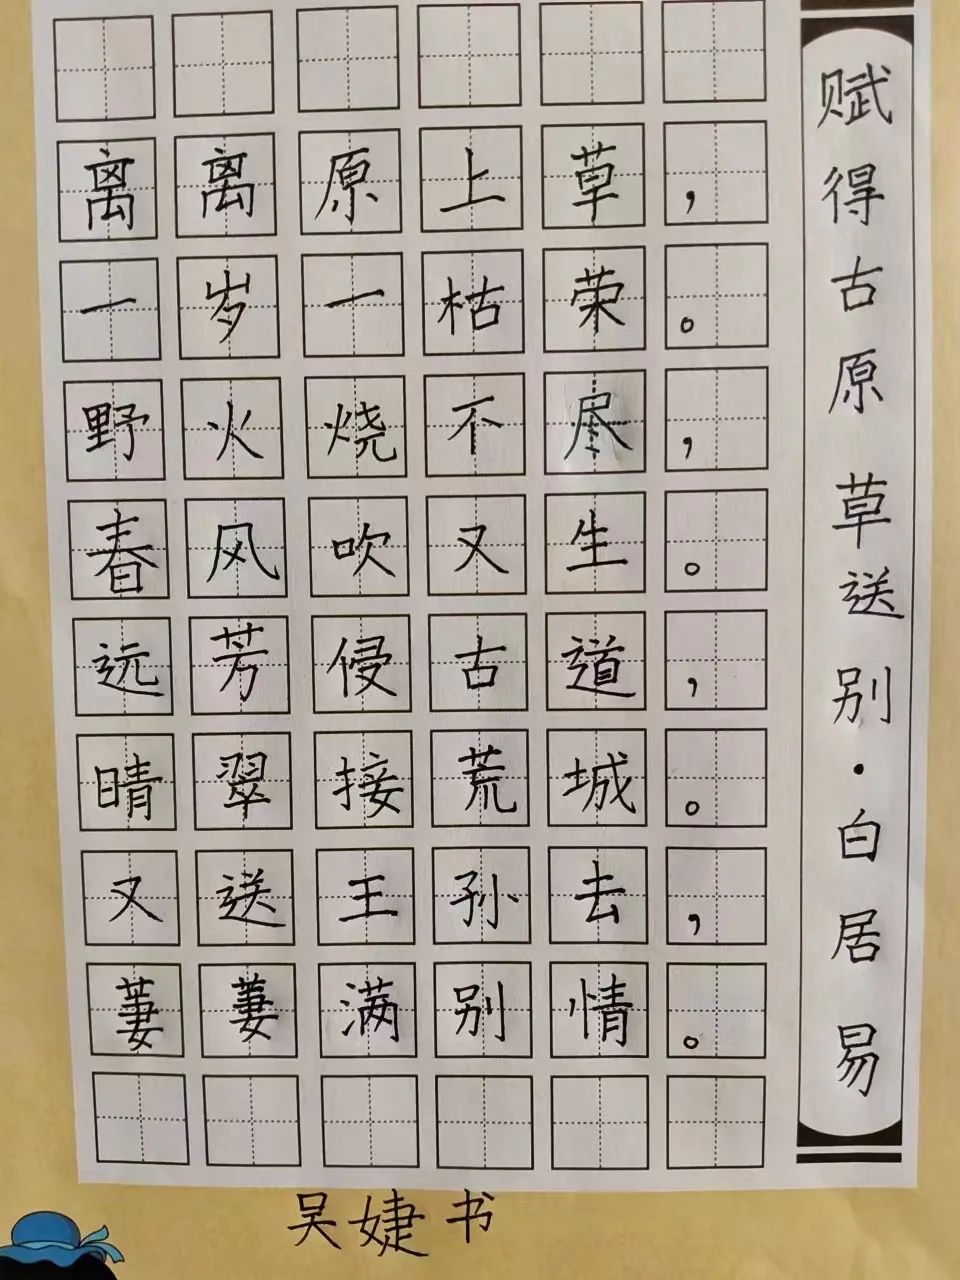 赋得古原草送别·白居易
离离原上草，
一岁一枯荣。
野火烧不尽，
春风吹又生。
远芳侵古道，
晴翠接荒城。
又送王孙去，
萋萋满别情。
吴婕书